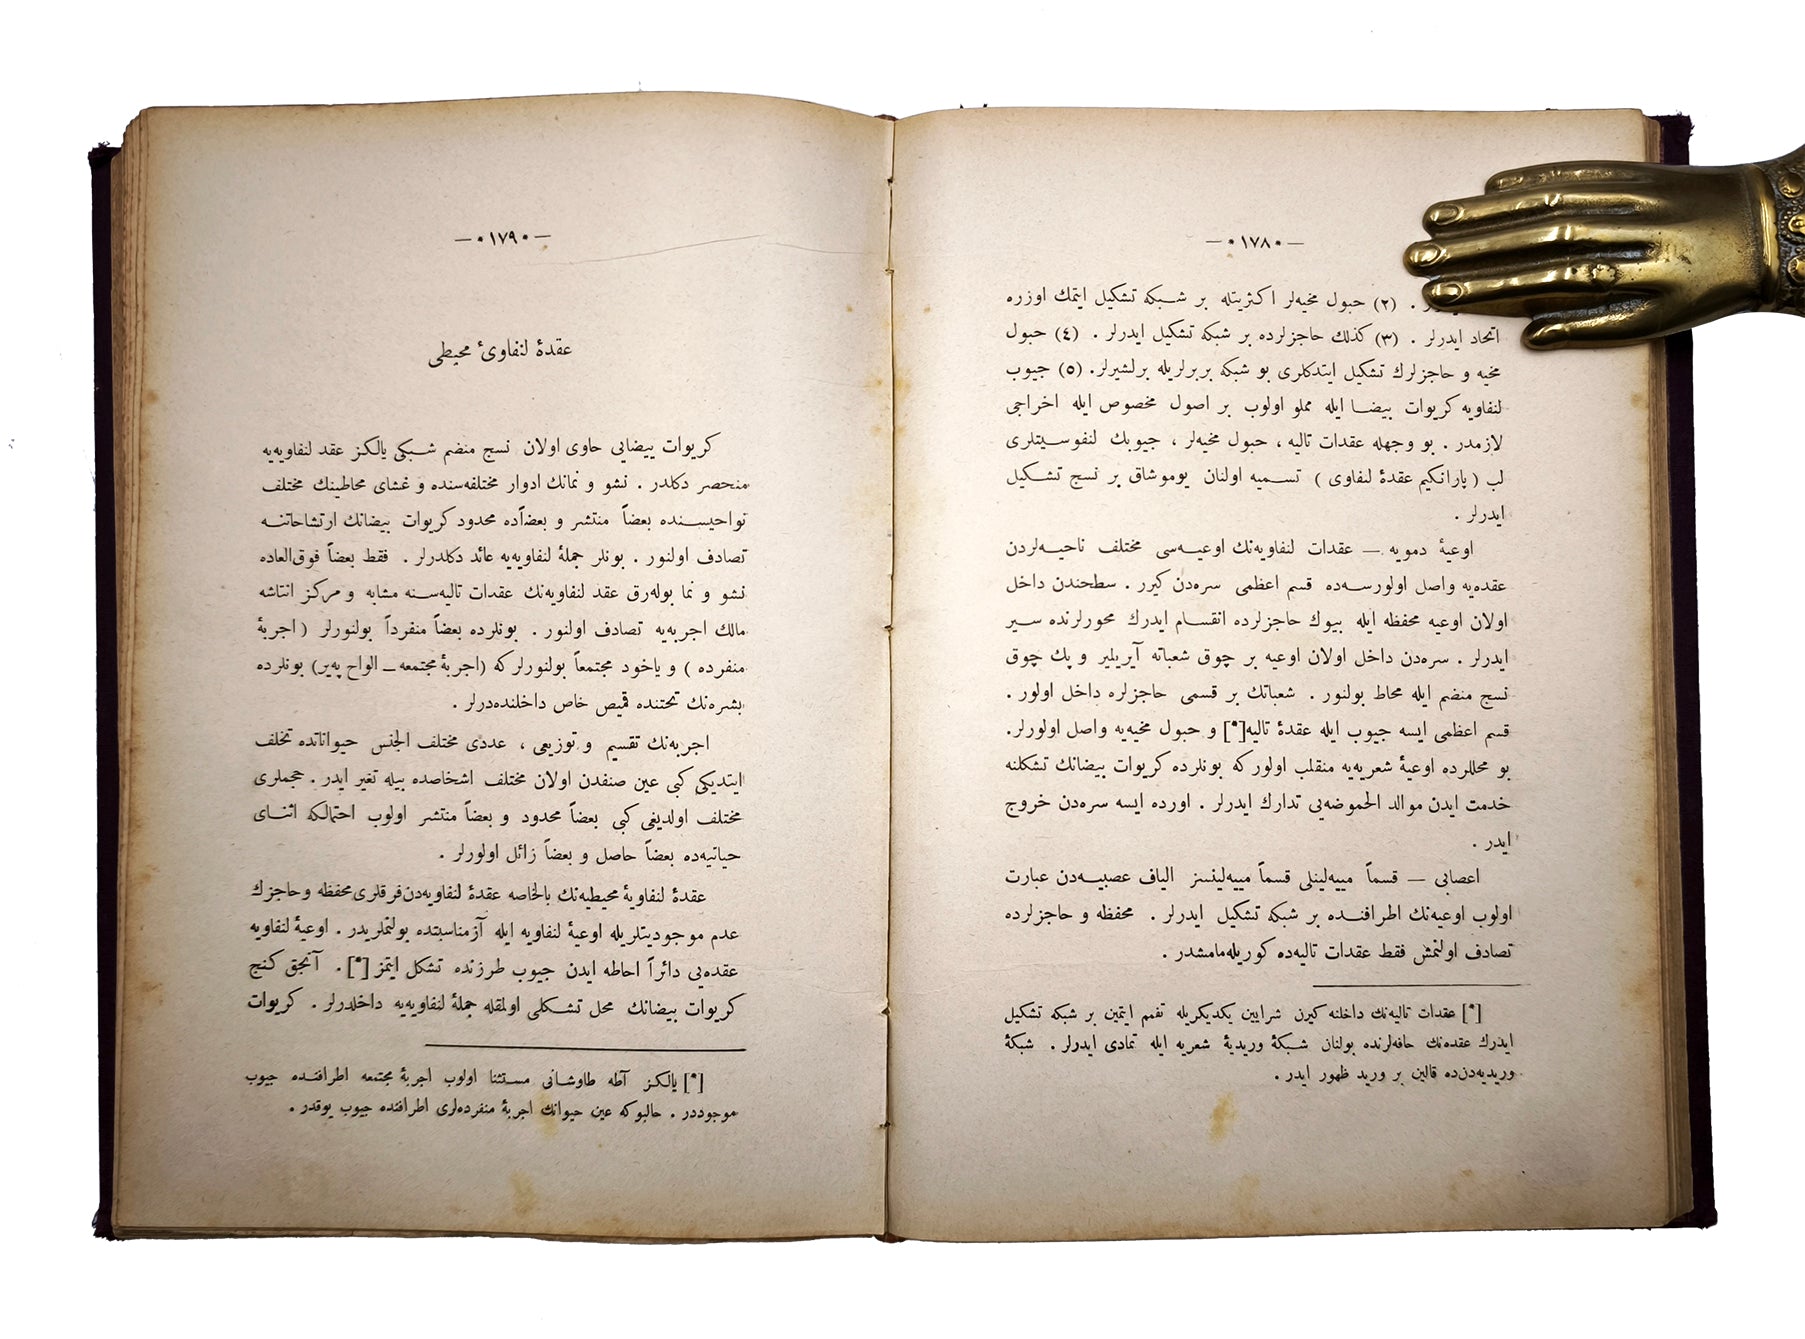 — * ١٧٨ * —
. (٢) حبول مخيه‌لر اكثريتله بر شبكه تشكيل ايتمك اوزره
اتحاد ايدرلر . (٣) كذلك حاجزلرده بر شبكه تشكيل ايدرلر . (٤) حبول
مخيه و حاجزلرك تشكيل ايتدكلرى بو شبكه بربرلريله برلشيرلر. (٥) جيوب
لنفاويه كريوات بيضا ايله مملو اولوب بر اصول مخصوص ايله اخراجى
لازمدر . بو وجهله عقدات تاليه ، حبول مخيه‌لر ، جيوبك لنفوسيتلرى
لب ( پارانكيم عقدهٔ لنفاوى ) تسميه اولنان يوموشاق بر نسج تشكيل
ايدرلر .
اوعيهٔ دمويه — عقدات لنفاويه‌نك اوعيه‌سى مختلف ناحيه‌لردن
عقده‌يه واصل اولورسه‌ده قسم اعظمى سره‌دن كيرر . سطحندن داخل
اولان اوعيه محفظه ايله بيوك حاجزلرده انقسام ايدرك محورلرنده سير
ايدرلر . سره‌دن داخل اولان اوعيه بر چوق شعباته آيريلير و پك چوق
نسج منضم ايله محاط بولنور . شعباتك بر قسمى حاجزلره داخل اولور .
قسم اعظمى ايسه جيوب ايله عقدهٔ تاليه[*] و حبول مخيه‌يه واصل اولورلر.
بو محللرده اوعيهٔ شعريه‌يه منقلب اولوركه بونلرده كريوات بيضانك تشكلنه
خدمت ايدن موالد الحموضه‌يى تدارك ايدرلر . اورده ايسه سره‌دن خروج
ايدر .
اعصابى — قسماً مييه‌لينلى قسماً مييه‌لينسز الياف عصبيه‌دن عبارت
اولوب اوعيه‌نك اطرافنده بر شبكه تشكيل ايدرلر . محفظه و حاجزلرده
تصادف اولنمش فقط عقدات تاليه‌ده كوريله‌مامشدر .
[*] عقدات تاليه‌نك داخلنه كيرن شرايين يكديكريله تفمم ايتمين بر شبكه تشكيل
ايدرك عقده‌نك حافه‌لرنده بولنان شبكهٔ وريديهٔ شعريه ايله تمادى ايدرلر . شبكهٔ
وريديه‌دن‌ده قالين بر وريد ظهور ايدر .
— * ١٧٩ * —
عقدهٔ لنفاوىٔ محيطى
كريوات بيضايى حاوى اولان نسج منضم شبكى يالكز عقد لنفاويه‌يه
منحصر دكلدر . نشو و نمانك ادوار مختلفه‌سنده و غشاى مخاطينك مختلف
نواحيسنده بعضاً منتشر و بعضاًده محدود كريوات بيضانك ارتشاحاتنه
تصادف اولنور . بونلر جملهٔ لنفاويه‌يه عائد دكلدرلر . فقط بعضاً فوق‌العاده
نشو و نما بوله‌رق عقد لنفاويه‌نك عقدات تاليه‌سنه مشابه و مركز انتاشه
مالك اجربه‌يه تصادف اولنور . بونلرده بعضاً منفرداً بولنورلر ( اجربهٔ
منفرده ) و ياخود مجتمعاً بولنورلركه (اجربهٔ مجتمعه ـ الواح پەير) بونلرده
بشره‌نك تحتنده قميص خاص داخلنده‌درلر .
اجربه‌نك تقسيم و توزيعى ، عددى مختلف الجنس حيواناتده تخلف
ايتديكى كبى عين صنفدن اولان مختلف اشخاصده بيله تغير ايدر . حجملرى
مختلف اولديغى كبى بعضاً محدود و بعضاً منتشر اولوب احتمالكه اثناى
حياتيه‌ده بعضاً حاصل و بعضاً زائل اولورلر .
عقدهٔ لنفاويهٔ محيطيه‌نك بالخاصه عقدهٔ لنفاويه‌دن‌فرقلرى‌محفظه و حاجزك
عدم موجوديتلريله اوعيهٔ لنفاويه ايله آزمناسبتده بولنملريدر . اوعيهٔ لنفاويه
عقده‌يى دائراً احاطه ايدن جيوب طرزنده تشكل ايتمز [*] . آنجق كنج
كريوات بيضانك محل تشكلى اولمقله جملهٔ لنفاويه‌يه داخلدرلر . كريوات
[*] يالكز آطه طاوشانى مستثنا اولوب اجربهٔ مجتمعه اطرافنده جيوب
موجوددر . حالبوكه عين حيوانك اجربهٔ منفرده‌لرى اطرافنده جيوب يوقدر .